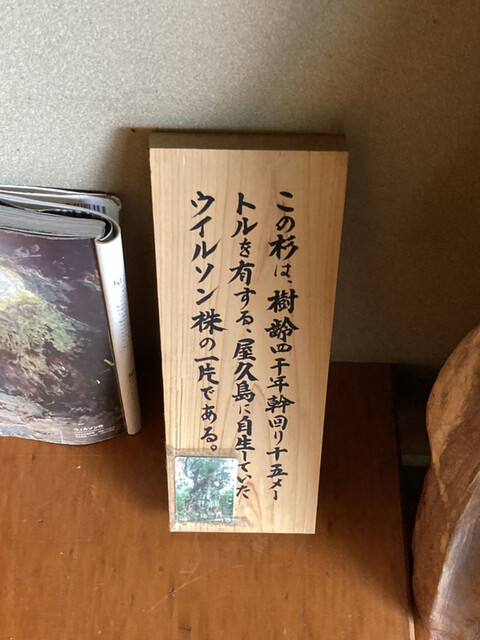 この杉は、樹齢四千年幹回り十五メー
トルを有する、屋久島に自生していた
ウイルソン株の一片である。
ウィルソン株